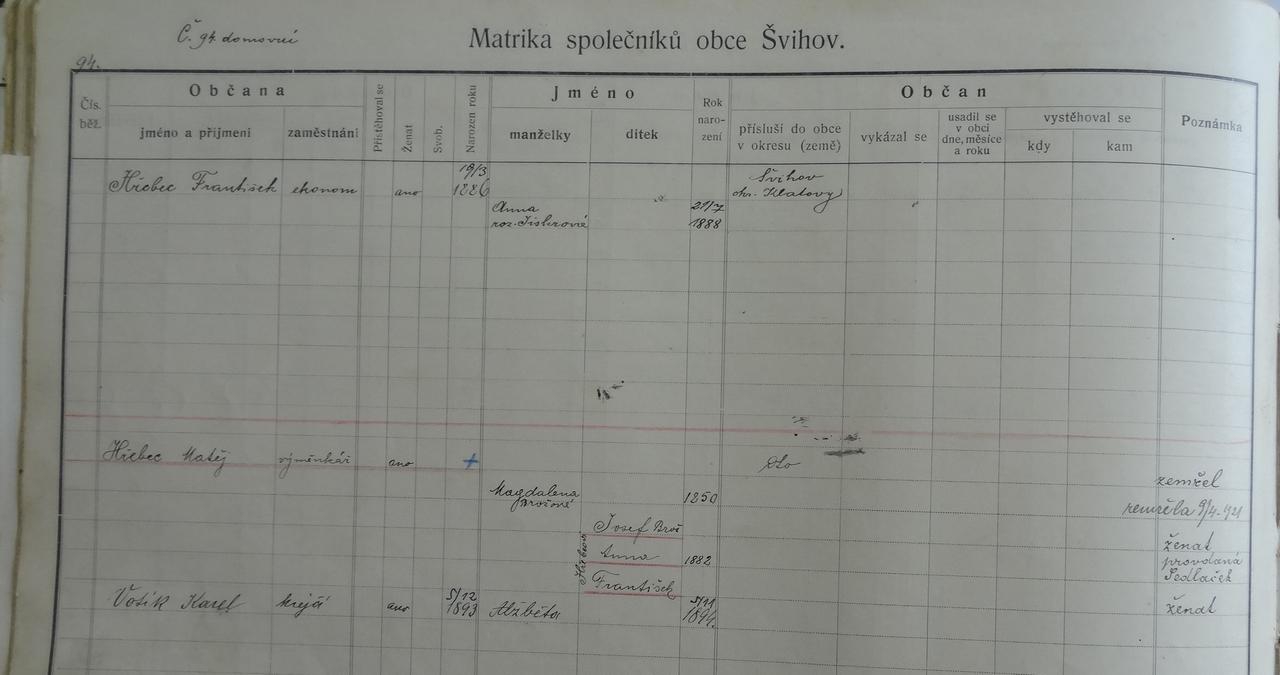 Č. 94 domovní
Matrika společníků obce Švihov.
94.
Čís. běž.
Občana
jméno a příjmení
zaměstnání
Přistěhoval se
Ženat
Svob.
Narozen roku
Jméno
manželky
dítek
Rok naro-zení
Občan
přísluší do obce v okresu (země)
vykázal se
usadil se v obci dne, měsíce a roku
vystěhoval se
kdy
kam
Poznámka
Hřebec František ekonom ano 19/3 1886 Švihov okr. Klatovy
Anna 21/7
roz. 1888
Hřebec Matěj výměnkář ano + dto
zemřel
Magdalena 1850 zemřela 9/4 - 921
Brošové
Josef Broš
ženat
Anna 1882 provdaná
Sedláček
František
Votík Karel krejčí ano 5/12 1893 Alžběta 5/11 1894. ženat